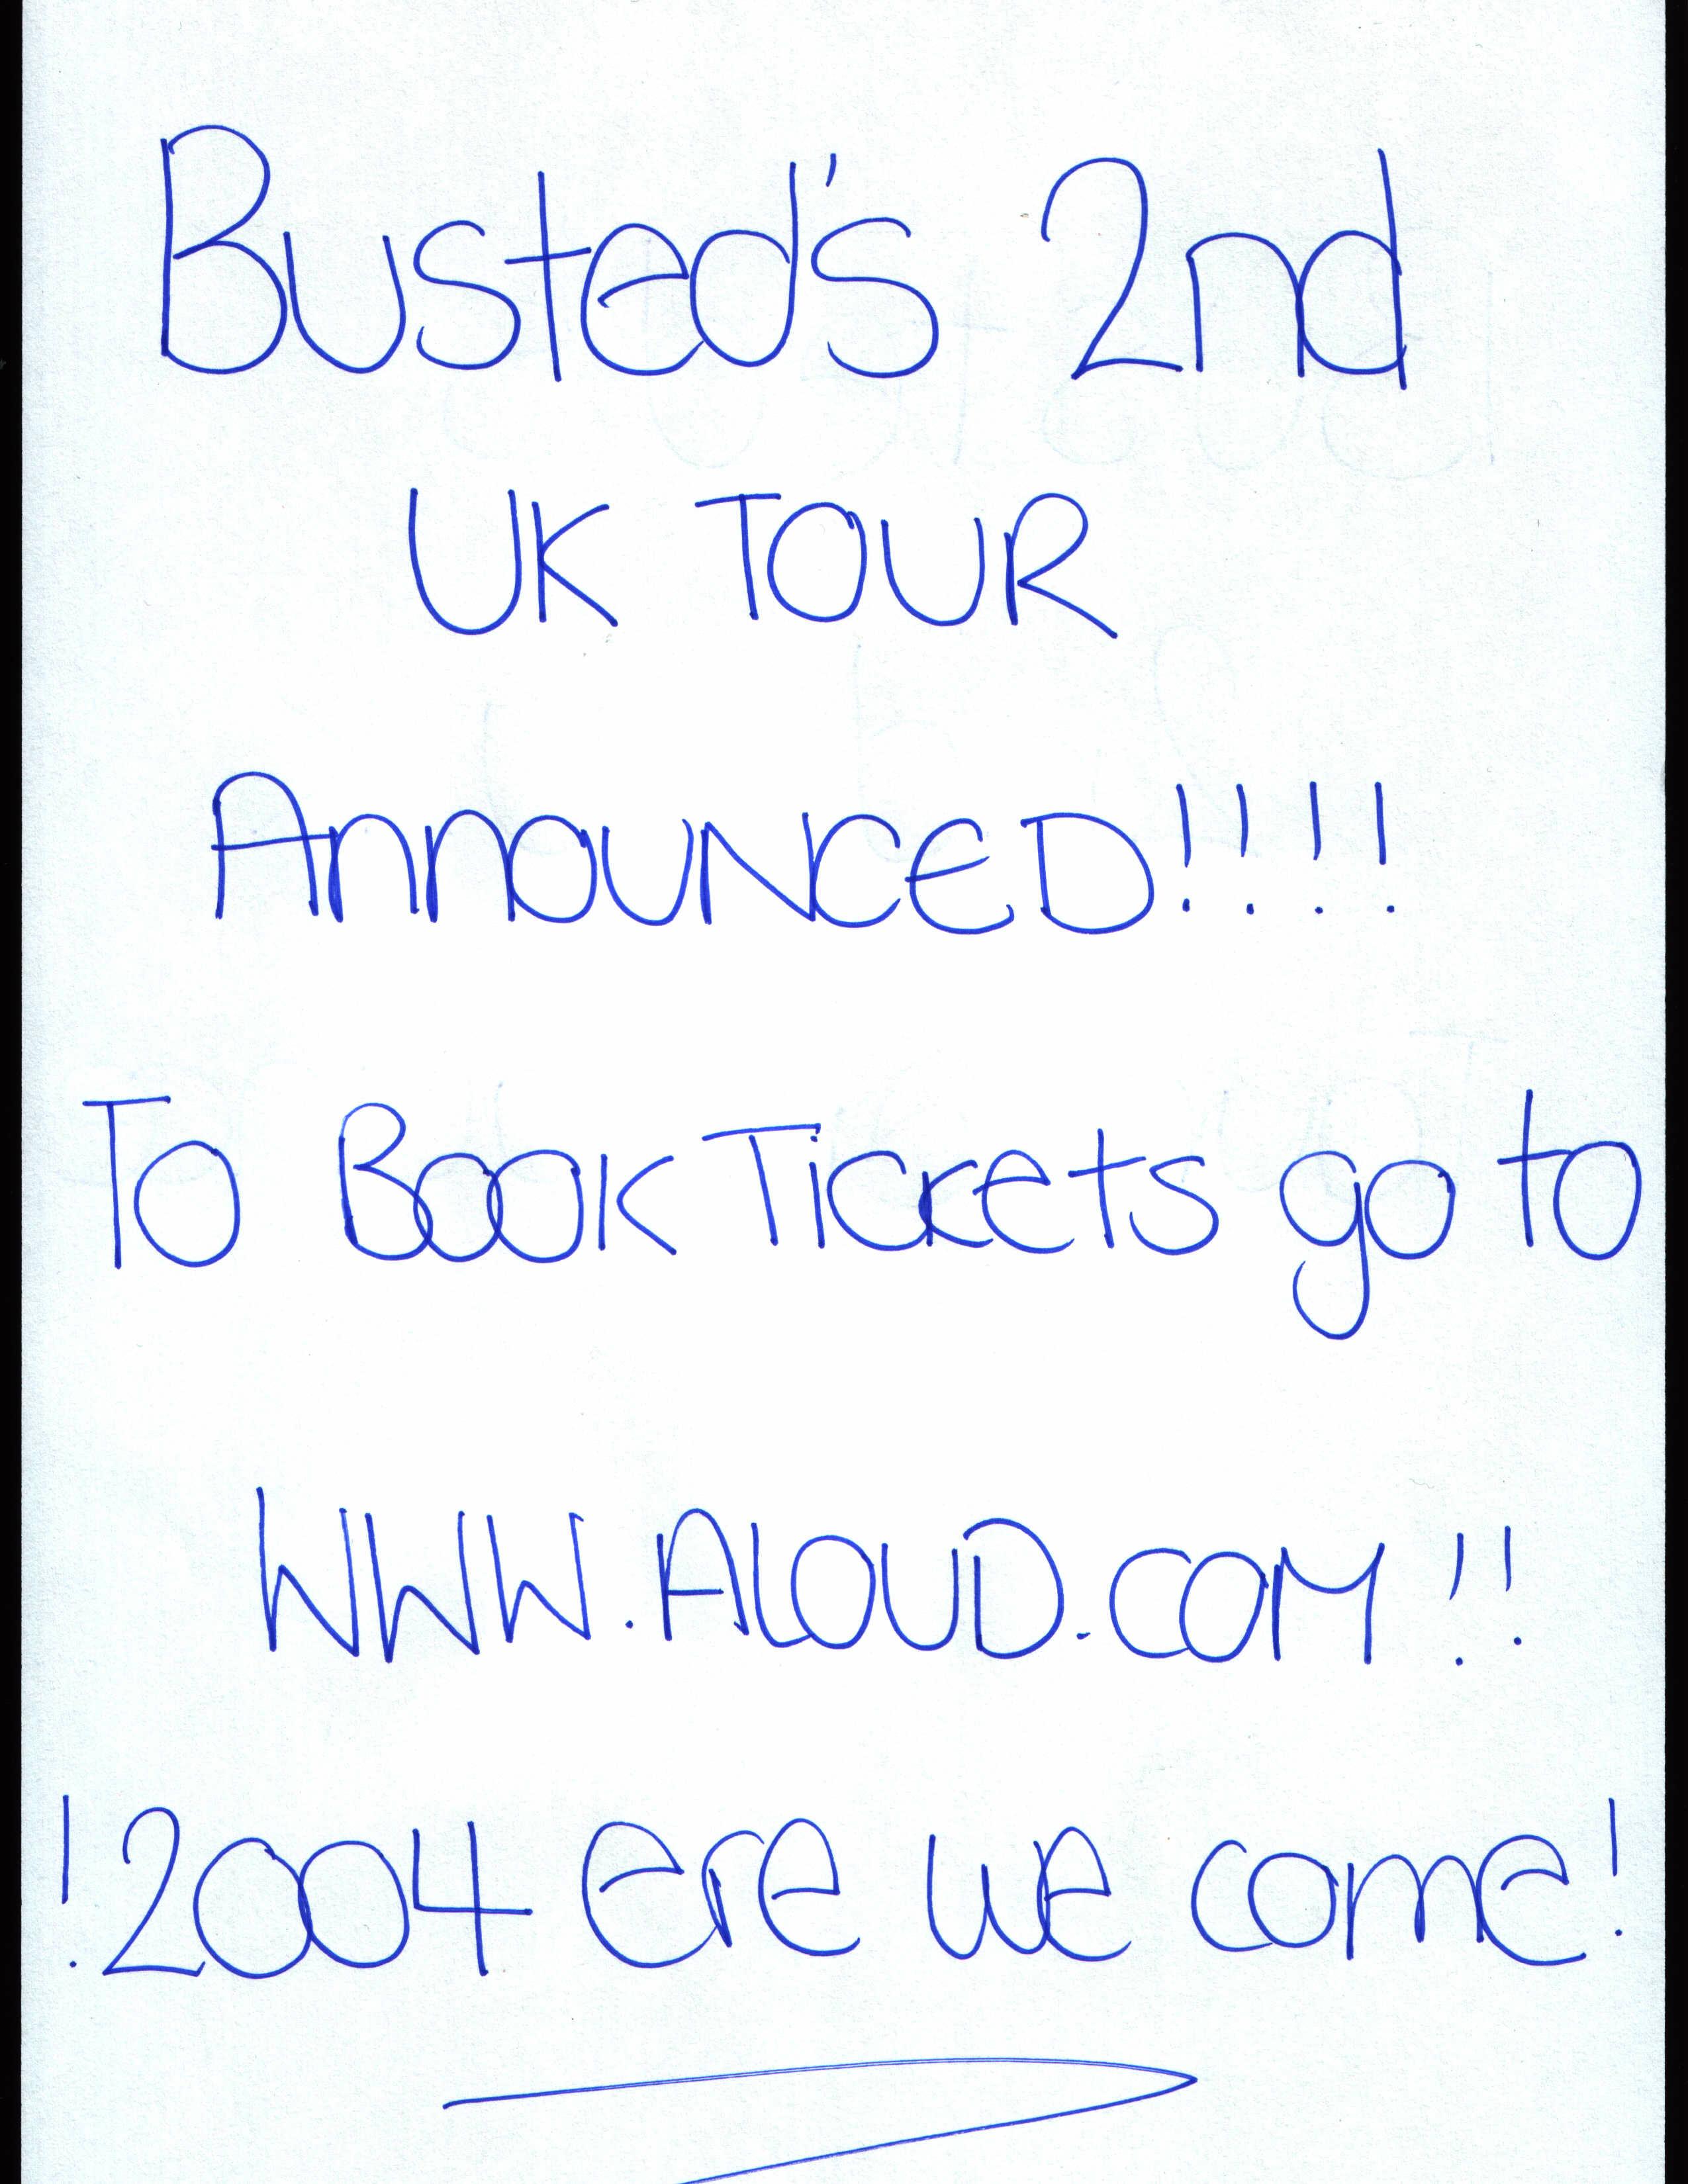 Busted's 2nd
UK TOUR
AnnOUNCED!!!!
To Book Tickets go to
WWW.ALOUD.COM!!
!2004 ere we come!